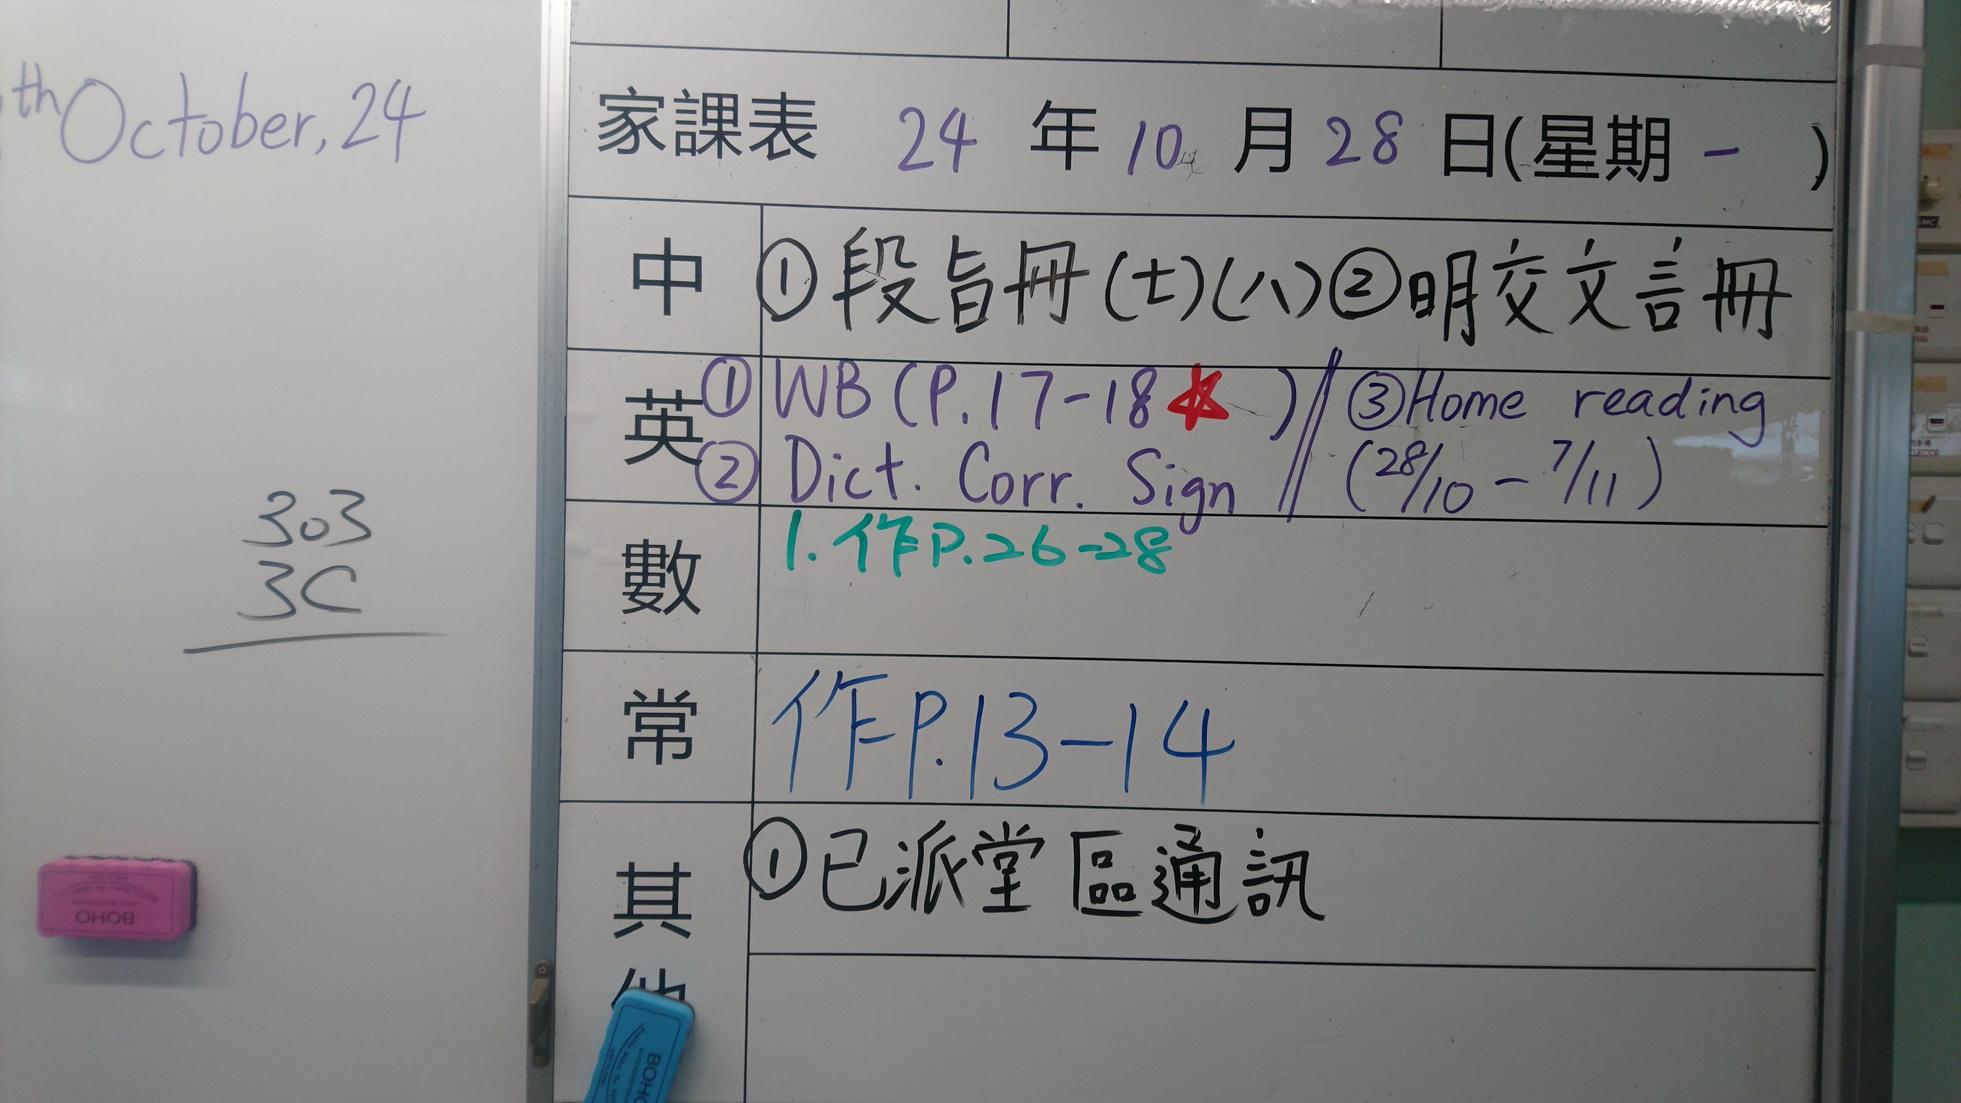 th October, 24
303
3C
家課表 24 年 10 月 28 日(星期 一 )
中 ①段旨冊(七)(八)②明交文言冊
英 ①WB (P.17-18 ) ③Home reading
②Dict. Corr. Sign (28/10 - 7/11)
數 1.作P.26-28
常 作P.13-14
其他 ①已派堂區通訊
BOHO
BOHO